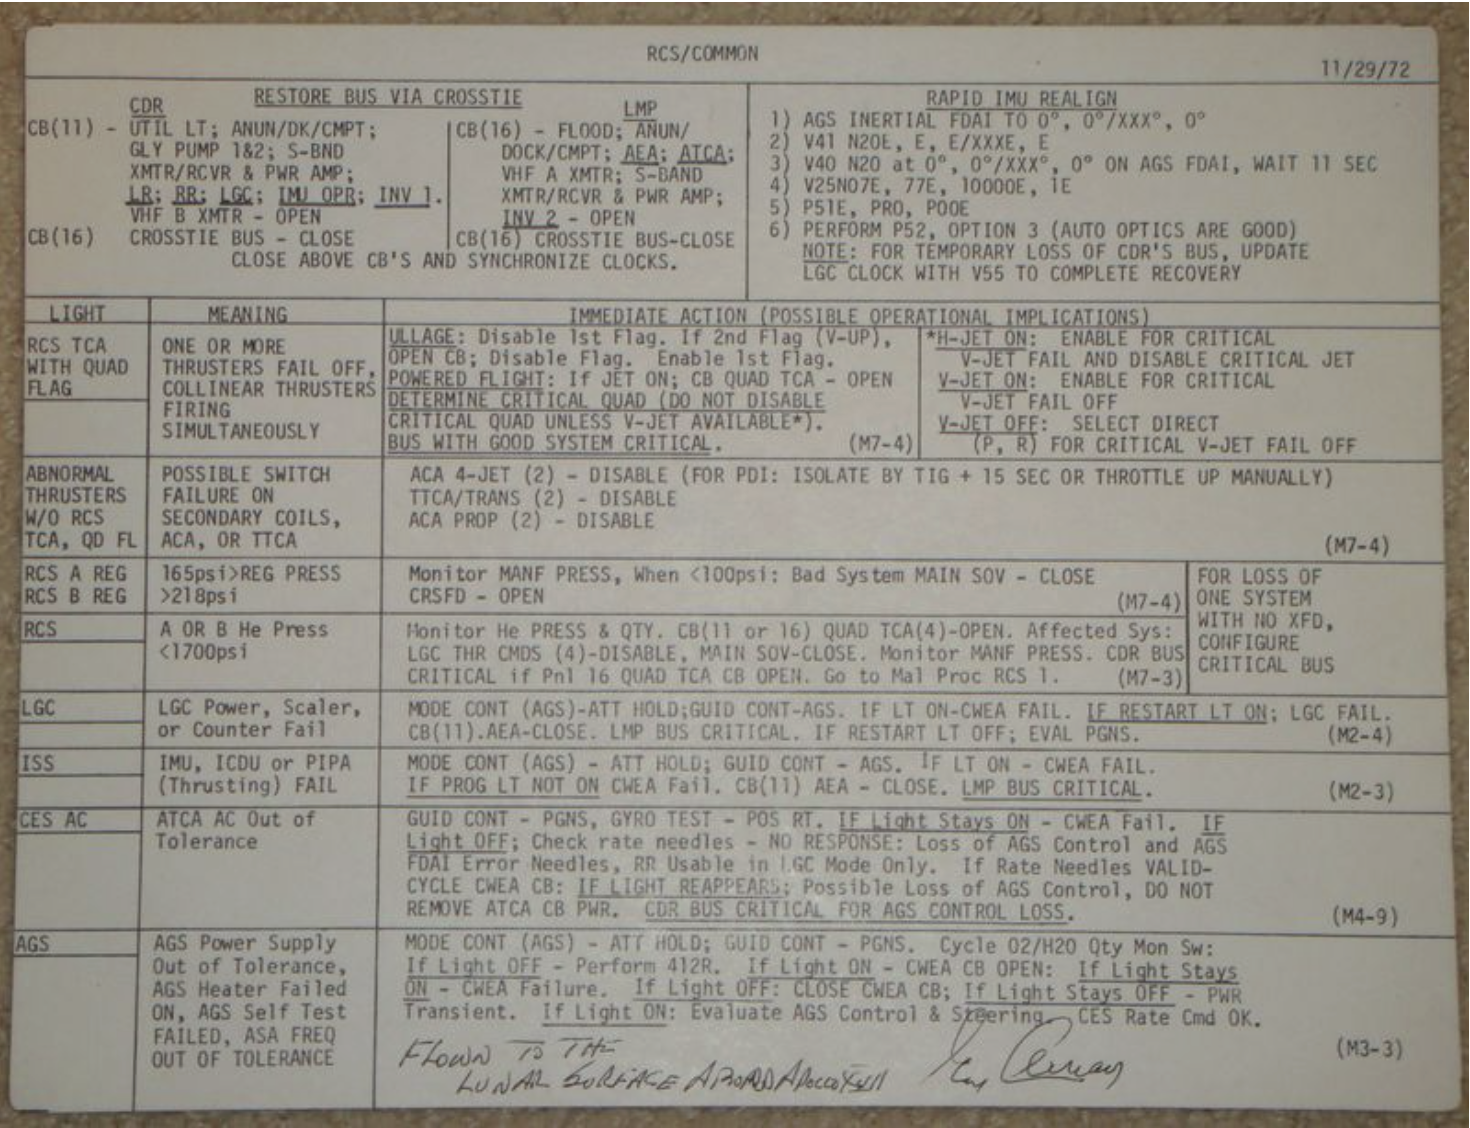 RCS/COMMON
11/29/72
RESTORE BUS VIA CROSSTIE
CDR
CB(11) - UTIL LT; ANUN/DK/CMPT;
GLY PUMP 1&2; S-BND
XMTR/RCVR & PWR AMP;
LR; RR; LGC; IMU OPR; INV 1.
VHF B XMTR - OPEN
CB(16) CROSSTIE BUS - CLOSE
LMP
CB(16) - FLOOD; ANUN/
DOCK/CMPT; AEA; ATCA;
VHF A XMTR; S-BAND
XMTR/RCVR & PWR AMP;
INV 2 - OPEN
CB(16) CROSSTIE BUS-CLOSE
CLOSE ABOVE CB'S AND SYNCHRONIZE CLOCKS.
RAPID IMU REALIGN
1) AGS INERTIAL FDAI TO 0°, 0°/XXX°, 0°
2) V41 N20E, E, E/XXXE, E
3) V40 N20 at 0°, 0°/XXX°, 0° ON AGS FDAI, WAIT 11 SEC
4) V25N07E, 77E, 10000E, 1E
5) P51E, PRO, P00E
6) PERFORM P52, OPTION 3 (AUTO OPTICS ARE GOOD)
NOTE: FOR TEMPORARY LOSS OF CDR'S BUS, UPDATE
LGC CLOCK WITH V55 TO COMPLETE RECOVERY
LIGHT
MEANING
IMMEDIATE ACTION (POSSIBLE OPERATIONAL IMPLICATIONS)
RCS TCA
WITH QUAD
FLAG
ONE OR MORE
THRUSTERS FAIL OFF,
COLLINEAR THRUSTERS
FIRING
SIMULTANEOUSLY
ULLAGE: Disable 1st Flag. If 2nd Flag (V-UP),
OPEN CB; Disable Flag. Enable 1st Flag.
POWERED FLIGHT: If JET ON; CB QUAD TCA - OPEN
DETERMINE CRITICAL QUAD (DO NOT DISABLE
CRITICAL QUAD UNLESS V-JET AVAILABLE*).
BUS WITH GOOD SYSTEM CRITICAL. (M7-4)
*H-JET ON: ENABLE FOR CRITICAL
V-JET FAIL AND DISABLE CRITICAL JET
V-JET ON: ENABLE FOR CRITICAL
V-JET FAIL OFF
V-JET OFF: SELECT DIRECT
(P, R) FOR CRITICAL V-JET FAIL OFF
ABNORMAL
THRUSTERS
W/O RCS
TCA, QD FL
POSSIBLE SWITCH
FAILURE ON
SECONDARY COILS,
ACA, OR TTCA
ACA 4-JET (2) - DISABLE (FOR PDI: ISOLATE BY TIG + 15 SEC OR THROTTLE UP MANUALLY)
TTCA/TRANS (2) - DISABLE
ACA PROP (2) - DISABLE
(M7-4)
RCS A REG
RCS B REG
165psi>REG PRESS
>218psi
Monitor MANF PRESS, When <100psi: Bad System MAIN SOV - CLOSE
CRSFD - OPEN (M7-4)
FOR LOSS OF
ONE SYSTEM
WITH NO XFD,
CONFIGURE
CRITICAL BUS
RCS
A OR B He Press
<1700psi
Monitor He PRESS & QTY. CB(11 or 16) QUAD TCA(4)-OPEN. Affected Sys:
LGC THR CMDS (4)-DISABLE, MAIN SOV-CLOSE. Monitor MANF PRESS. CDR BUS
CRITICAL if Pnl 16 QUAD TCA CB OPEN. Go to Mal Proc RCS 1. (M7-3)
LGC
LGC Power, Scaler,
or Counter Fail
MODE CONT (AGS)-ATT HOLD;GUID CONT-AGS. IF LT ON-CWEA FAIL. IF RESTART LT ON; LGC FAIL.
CB(11).AEA-CLOSE. LMP BUS CRITICAL. IF RESTART LT OFF; EVAL PGNS. (M2-4)
ISS
IMU, ICDU or PIPA
(Thrusting) FAIL
MODE CONT (AGS) - ATT HOLD; GUID CONT - AGS. IF LT ON - CWEA FAIL.
IF PROG LT NOT ON CWEA Fail. CB(11) AEA - CLOSE. LMP BUS CRITICAL. (M2-3)
CES AC
ATCA AC Out of
Tolerance
GUID CONT - PGNS, GYRO TEST - POS RT. IF Light Stays ON - CWEA Fail. IF
Light OFF; Check rate needles - NO RESPONSE: Loss of AGS Control and AGS
FDAI Error Needles, RR Usable in LGC Mode Only. If Rate Needles VALID-
CYCLE CWEA CB: IF LIGHT REAPPEARS; Possible Loss of AGS Control, DO NOT
REMOVE ATCA CB PWR. CDR BUS CRITICAL FOR AGS CONTROL LOSS. (M4-9)
AGS
AGS Power Supply
Out of Tolerance,
AGS Heater Failed
ON, AGS Self Test
FAILED, ASA FREQ
OUT OF TOLERANCE
MODE CONT (AGS) - ATT HOLD; GUID CONT - PGNS. Cycle O2/H2O Qty Mon Sw:
If Light OFF - Perform 412R. If Light ON - CWEA CB OPEN: If Light Stays
ON - CWEA Failure. If Light OFF: CLOSE CWEA CB; If Light Stays OFF - PWR
Transient. If Light ON: Evaluate AGS Control & Steering. CES Rate Cmd OK.
(M3-3)
FLOWN TO THE
LUNAR SURFACE ABOARD APOLLO XVII
Gene Cernan